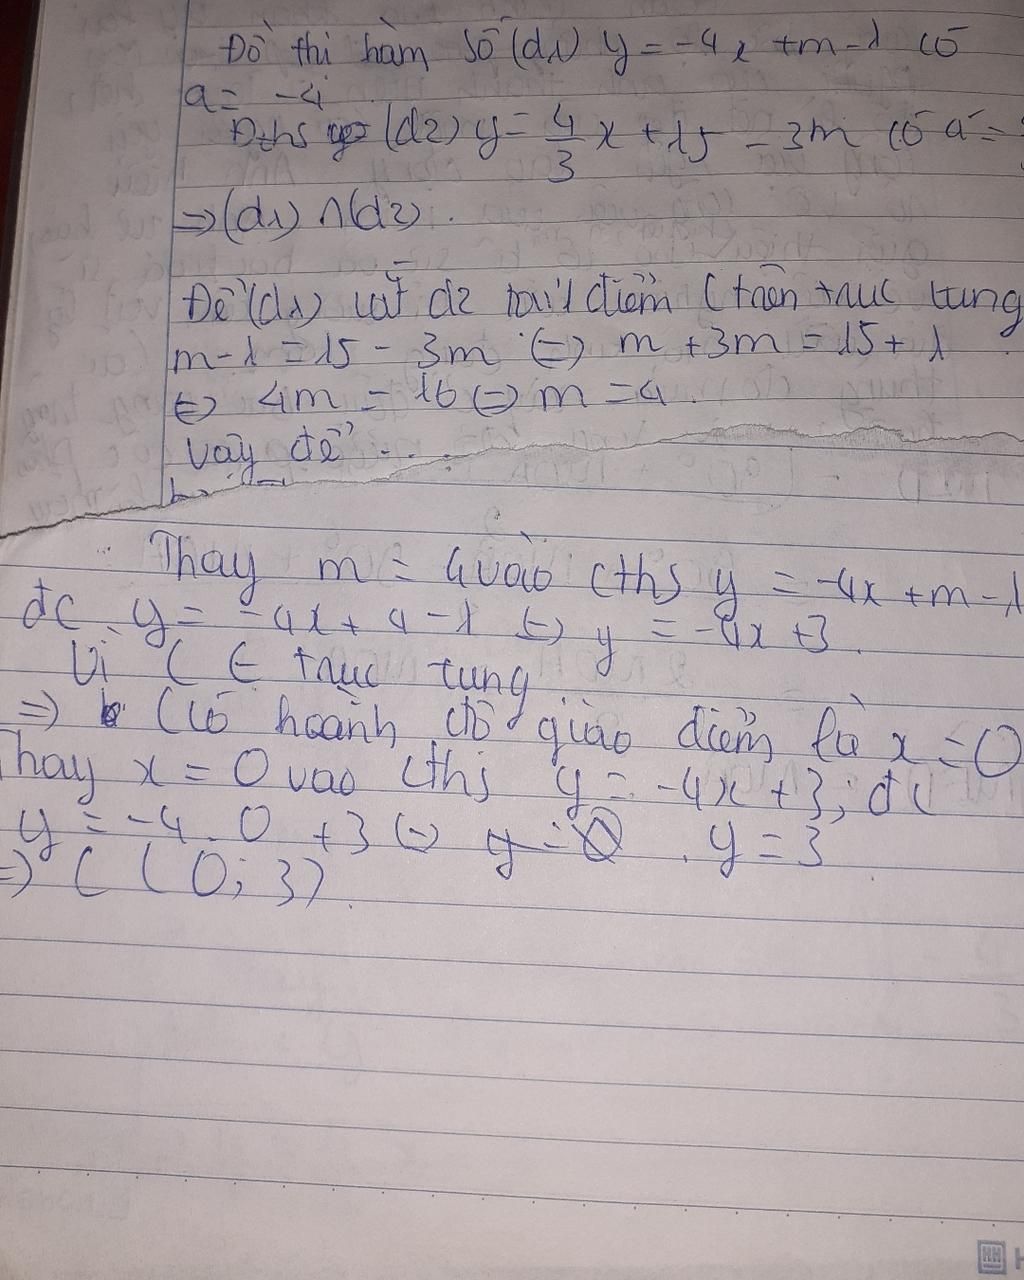 Đồ thị hàm số (d1) y = -4x + m - 1 có
a = -4
Đths (d2) y = 4/3 x + 15 - 3m có a' =
=> (d1) ∩ (d2).
Để (d1) cắt d2 tại 1 điểm C trên trục tung
m - 1 = 15 - 3m <=> m + 3m = 15 + 1
<=> 4m = 16 <=> m = 4.
Vậy để ...
Thay m = 4 vào cths y = -4x + m - 1
đc y = -4x + 4 - 1 <=> y = -4x + 3.
Vì C ∈ trục tung
=> C có hoành độ giao điểm là x = 0
Thay x = 0 vào cths y = -4x + 3, đc
y = -4 . 0 + 3 <=> y = 3
=> C (0; 3).